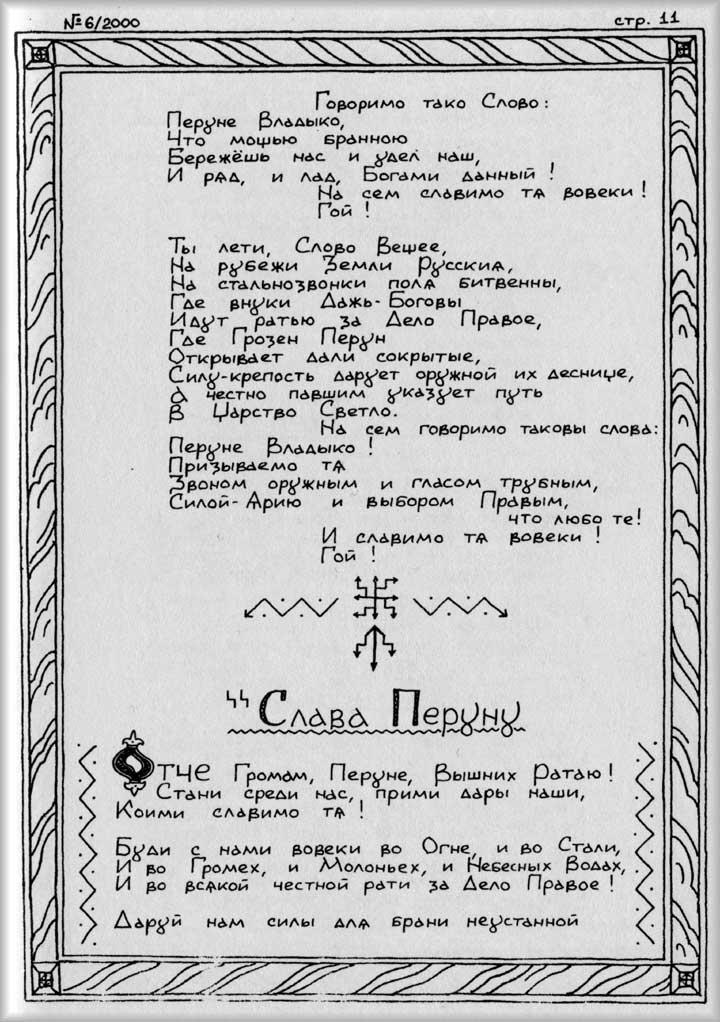 №6/2000
стр. 11
Говоримо тако Слово:
Перуне Владыко,
Что мощью бранною
Бережёшь нас и удел наш,
И рѧд, и лад, Богами данный!
На сем славимо тѧ вовеки!
Гой!
Ты лети, Слово Вещее,
На рубежи Земли Русскиѧ,
На стальнозвонки полѧ битвенны,
Где внуки Дажь-Боговы
Идут ратью за Дело Правое,
Где Грозен Перун
Открывает дали сокрытые,
Силу-крепость дарует оружной их деснице,
а честно павшим указует путь
В Царство Светло.
На сем говоримо таковы слова:
Перуне Владыко!
Призываемо тѧ
Звоном оружным и гласом трубным,
Силой-Арию и выбором Правым,
что любо те!
И славимо тѧ вовеки!
Гой!
Слава Перуну
Отче Громам, Перуне, Вышних Ратаю!
Стани среди нас, прими дары наши,
Коими славимо тѧ!
Буди с нами вовеки во Огне, и во Стали,
И во Громех, и Молоньех, и Небесных Водах,
И во всѧкой честной рати за Дело Правое!
Даруй нам силы длѧ брани неустанной